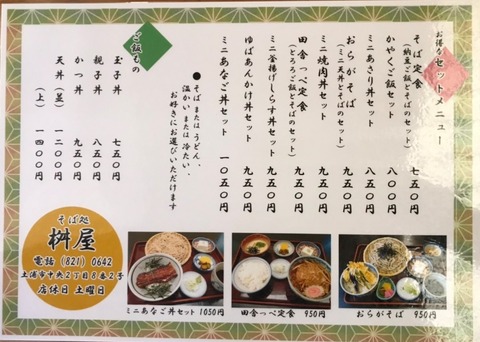 お得なセットメニュー
そば定食 七五〇円
(納豆ご飯とそばのセット)
かやくご飯セット 八〇〇円
ミニあさり丼セット 八五〇円
おらがそば 九五〇円
(ミニ天丼とそばのセット)
ミニ焼肉丼セット 九五〇円
田舎っぺ定食 九五〇円
(とろろご飯とそばのセット)
ミニ釜揚げしらす丼セット 九五〇円
ゆばあんかけ丼セット 九五〇円
ミニあなご丼セット 一〇五〇円
●そばまたはうどん、
温かいまたは冷たい、
お好きにお選びいただけます
ご飯もの
玉子丼 七五〇円
親子丼 八五〇円
かつ丼 九五〇円
天丼(並) 一二〇〇円
(上) 一四〇〇円
そば処
桝屋
電話 (821) 0642
土浦市中央2丁目8番2号
店休日 土曜日
ミニあなご丼セット 1050円
田舎っぺ定食 950円
おらがそば 950円